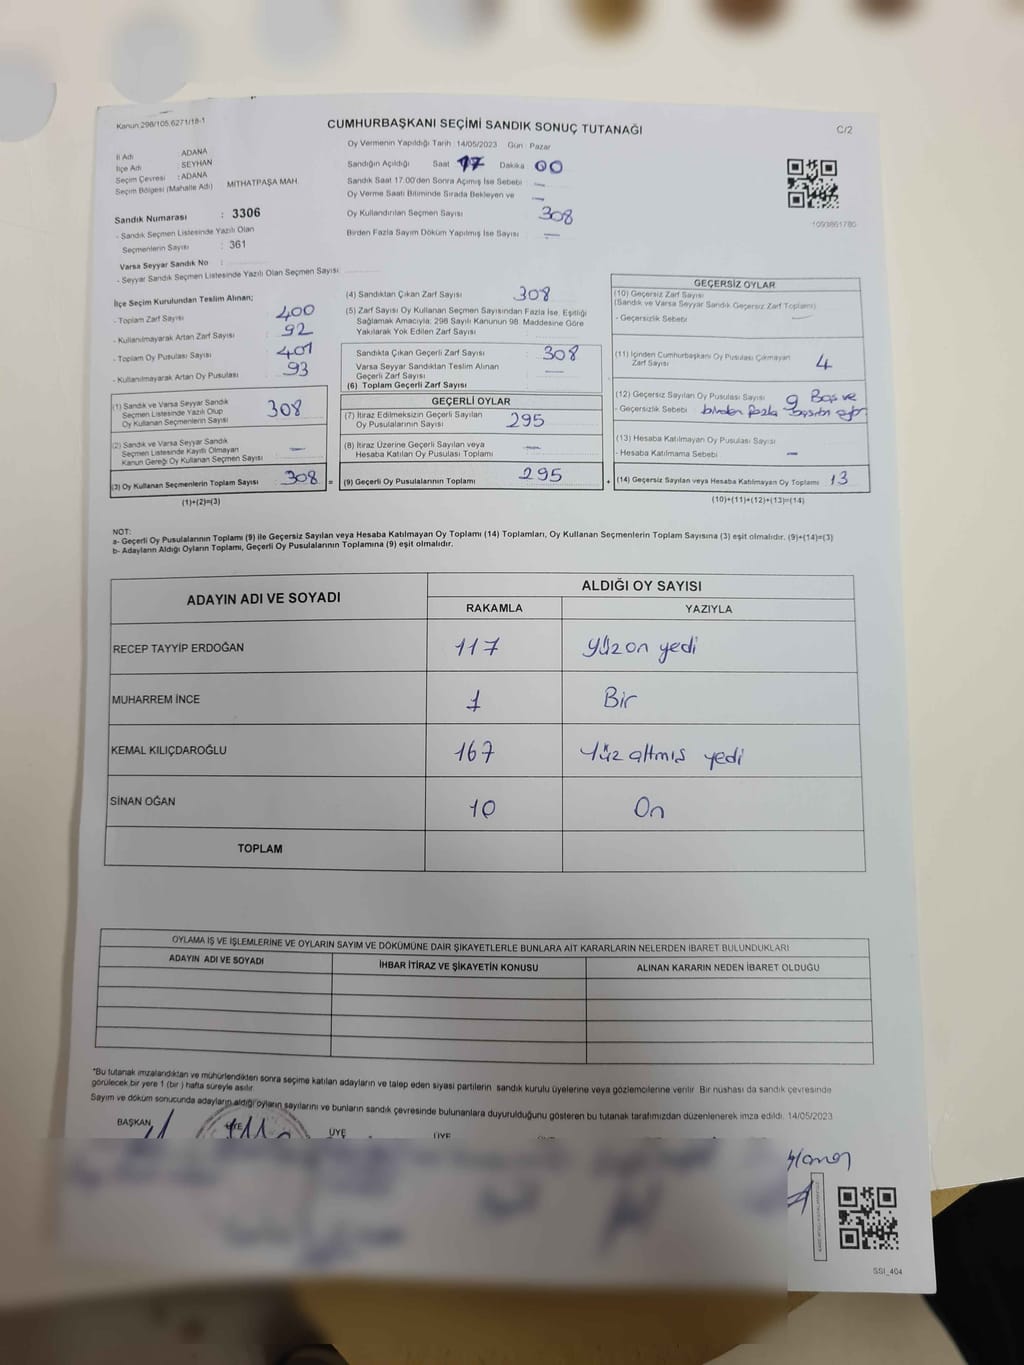 Kanun:298/105,6271/18-1
CUMHURBAŞKANI SEÇİMİ SANDIK SONUÇ TUTANAĞI
C/2
İl Adı : ADANA
İlçe Adı : SEYHAN
Seçim Çevresi : ADANA
Seçim Bölgesi (Mahalle Adı) MİTHATPAŞA MAH.
Sandık Numarası : 3306
- Sandık Seçmen Listesinde Yazılı Olan
Seçmenlerin Sayısı : 361
Varsa Seyyar Sandık No :
- Seyyar Sandık Seçmen Listesinde Yazılı Olan Seçmen Sayısı
Oy Vermenin Yapıldığı Tarih 14/05/2023 Gün Pazar
Sandığın Açıldığı Saat 17 Dakika 00
Sandık Saat 17.00'den Sonra Açımış İse Sebebi —
Oy Verme Saati Bitiminde Sırada Bekleyen ve —
Oy Kullandırılan Seçmen Sayısı 308
Birden Fazla Sayım Döküm Yapılmış İse Sayısı —
1093861785
İlçe Seçim Kurulundan Teslim Alınan;
- Toplam Zarf Sayısı 400
- Kullanılmayarak Artan Zarf Sayısı 92
- Toplam Oy Pusulası Sayısı 401
- Kullanılmayarak Artan Oy Pusulası 93
(1) Sandık ve Varsa Seyyar Sandık
Seçmen Listesinde Yazılı Olup
Oy Kullanan Seçmenlerin Sayısı 308
(2) Sandık ve Varsa Seyyar Sandık
Seçmen Listesinde Kayıtlı Olmayan
Kanun Gereği Oy Kullanan Seçmen Sayısı —
(3) Oy Kullanan Seçmenlerin Toplam Sayısı 308 =
(1)+(2)=(3)
(4) Sandıktan Çıkan Zarf Sayısı 308
(5) Zarf Sayısı Oy Kullanan Seçmen Sayısından Fazla İse, Eşitliği
Sağlamak Amacıyla; 298 Sayılı Kanunun 98. Maddesine Göre
Yakılarak Yok Edilen Zarf Sayısı
Sandıkta Çıkan Geçerli Zarf Sayısı 308
Varsa Seyyar Sandıktan Teslim Alınan
Geçerli Zarf Sayısı —
(6) Toplam Geçerli Zarf Sayısı
GEÇERLİ OYLAR
(7) İtiraz Edilmeksizin Geçerli Sayılan
Oy Pusulalarının Sayısı 295
(8) İtiraz Üzerine Geçerli Sayılan veya
Hesaba Katılan Oy Pusulası Toplamı —
(9) Geçerli Oy Pusulalarının Toplamı 295 +
GEÇERSİZ OYLAR
(10) Geçersiz Zarf Sayısı
(Sandık ve Varsa Seyyar Sandık Geçersiz Zarf Toplamı)
- Geçersizlik Sebebi —
(11) İçinden Cumhurbaşkanı Oy Pusulası Çıkmayan
Zarf Sayısı 4
(12) Geçersiz Sayılan Oy Pusulası Sayısı 9 Boş ve
- Geçersizlik Sebebi birden fazla
(13) Hesaba Katılmayan Oy Pusulası Sayısı
- Hesaba Katılmama Sebebi —
(14) Geçersiz Sayılan veya Hesaba Katılmayan Oy Toplamı 13
(10)+(11)+(12)+(13)=(14)
NOT:
a- Geçerli Oy Pusulalarının Toplamı (9) ile Geçersiz Sayılan veya Hesaba Katılmayan Oy Toplamı (14) Toplamları, Oy Kullanan Seçmenlerin Toplam Sayısına (3) eşit olmalıdır. (9)+(14)=(3)
b- Adayların Aldığı Oyların Toplamı, Geçerli Oy Pusulalarının Toplamına (9) eşit olmalıdır.
ADAYIN ADI VE SOYADI ALDIĞI OY SAYISI
RAKAMLA YAZIYLA
RECEP TAYYİP ERDOĞAN 117 Yüzon yedi
MUHARREM İNCE 1 Bir
KEMAL KILIÇDAROĞLU 167 Yüz altmış yedi
SİNAN OĞAN 10 On
TOPLAM
OYLAMA İŞ VE İŞLEMLERİNE VE OYLARIN SAYIM VE DÖKÜMÜNE DAİR ŞİKAYETLERLE BUNLARA AİT KARARLARIN NELERDEN İBARET BULUNDUKLARI
ADAYIN ADI VE SOYADI İHBAR İTİRAZ VE ŞİKAYETİN KONUSU ALINAN KARARIN NEDEN İBARET OLDUĞU
*Bu tutanak imzalandıktan ve mühürlendikten sonra seçime katılan adayların ve talep eden siyasi partilerin sandık kurulu üyelerine veya gözlemcilerine verilir. Bir nüshası da sandık çevresinde
görülecek bir yere 1 (bir ) hafta süreyle asılır.
Sayım ve döküm sonucunda adayların aldığı oyların sayılarını ve bunların sandık çevresinde bulunanlara duyurulduğunu gösteren bu tutanak tarafımızdan düzenlenerek imza edildi. 14/05/2023
BAŞKAN ÜYE ÜYE ÜYE
SSI_404